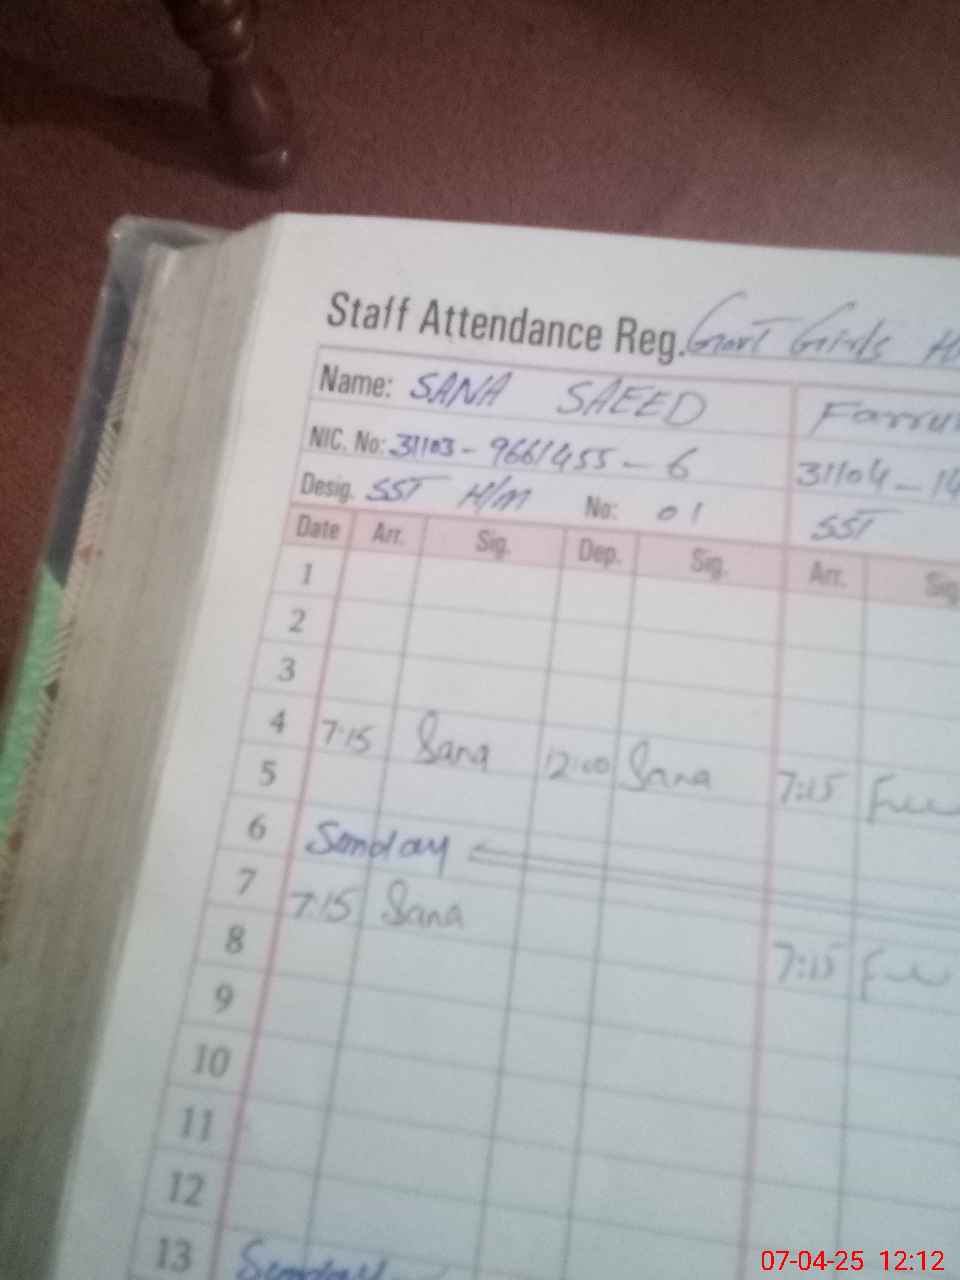 Staff Attendance Reg. Govt Girls H
Name: SANA SAEED Farru
NIC. No: 31103-9661455-6 31104-14
Desig. SST H/M No: 01 SST
Date Arr. Sig. Dep. Sig. Arr. Sig
1
2
3
4 7:15 Sana 12:00 Sana 7:15
5
6 Sunday
7 7:15 Sana 7:15
8
9
10
11
12
13 Sunday
07-04-25 12:12